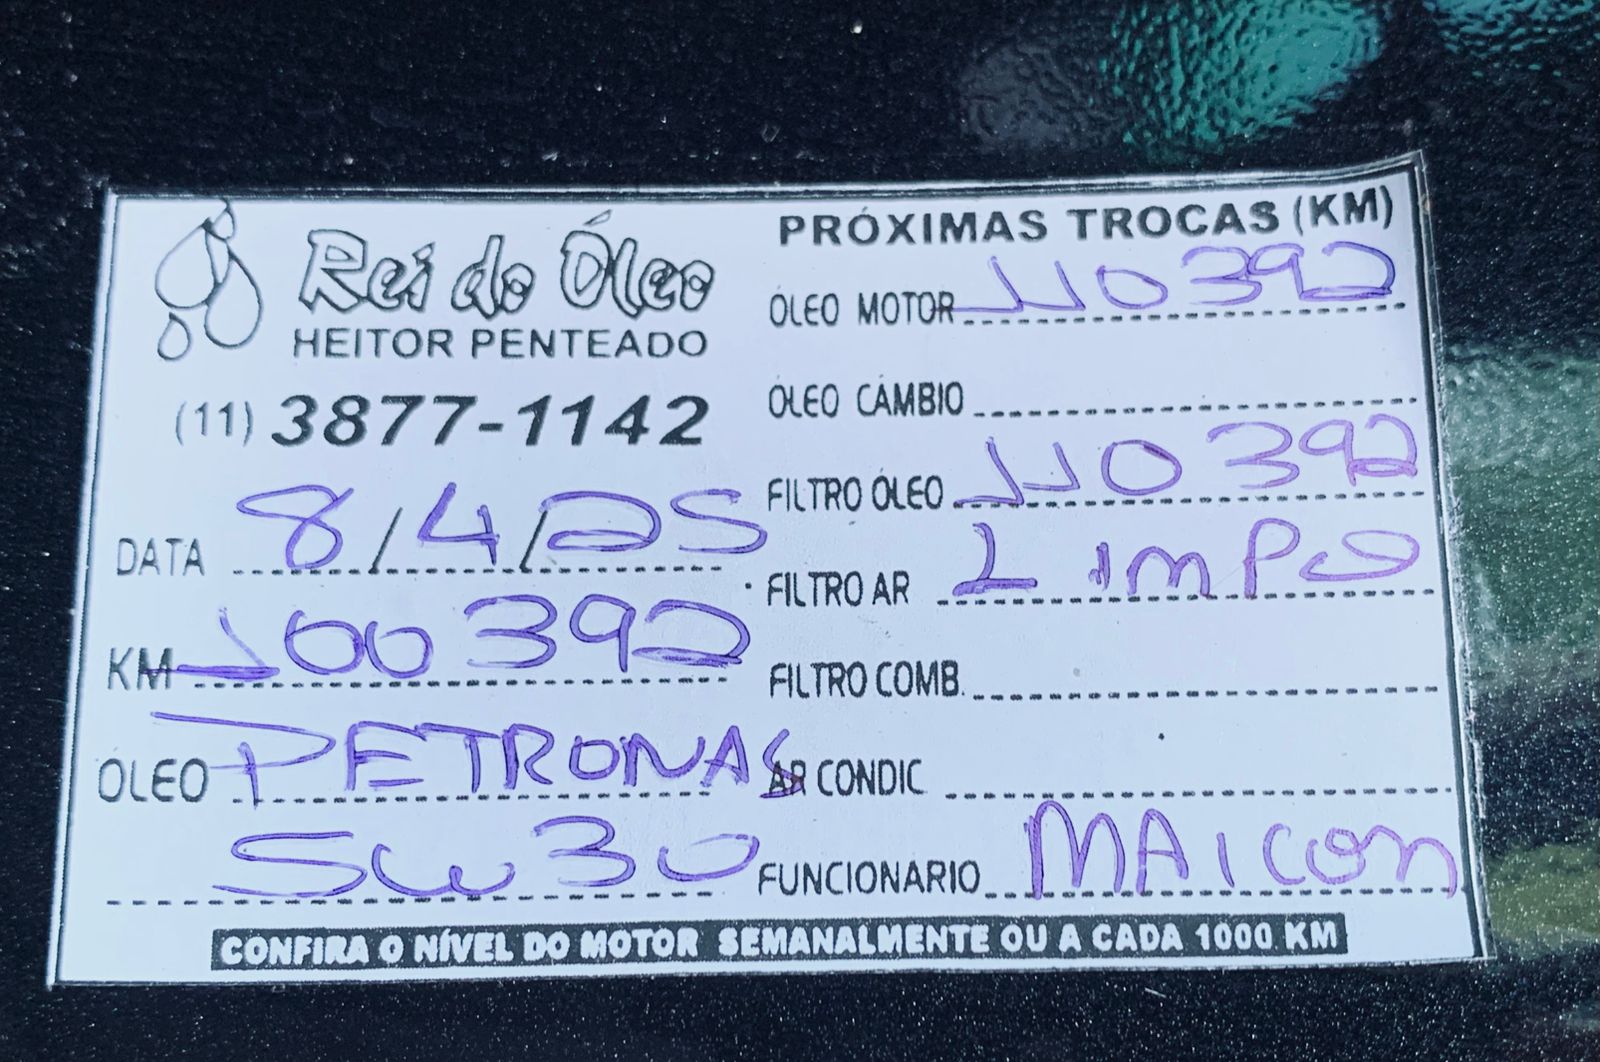 Rei do Óleo
HEITOR PENTEADO
(11) 3877-1142
DATA 8/4/25
KM 100392
ÓLEO PETRONAS
5W30
PRÓXIMAS TROCAS (KM)
ÓLEO MOTOR 110392
ÓLEO CÂMBIO
FILTRO ÓLEO 110392
FILTRO AR LIMPO
FILTRO COMB.
AR CONDIC
FUNCIONÁRIO MAICON
CONFIRA O NÍVEL DO MOTOR SEMANALMENTE OU A CADA 1000 KM